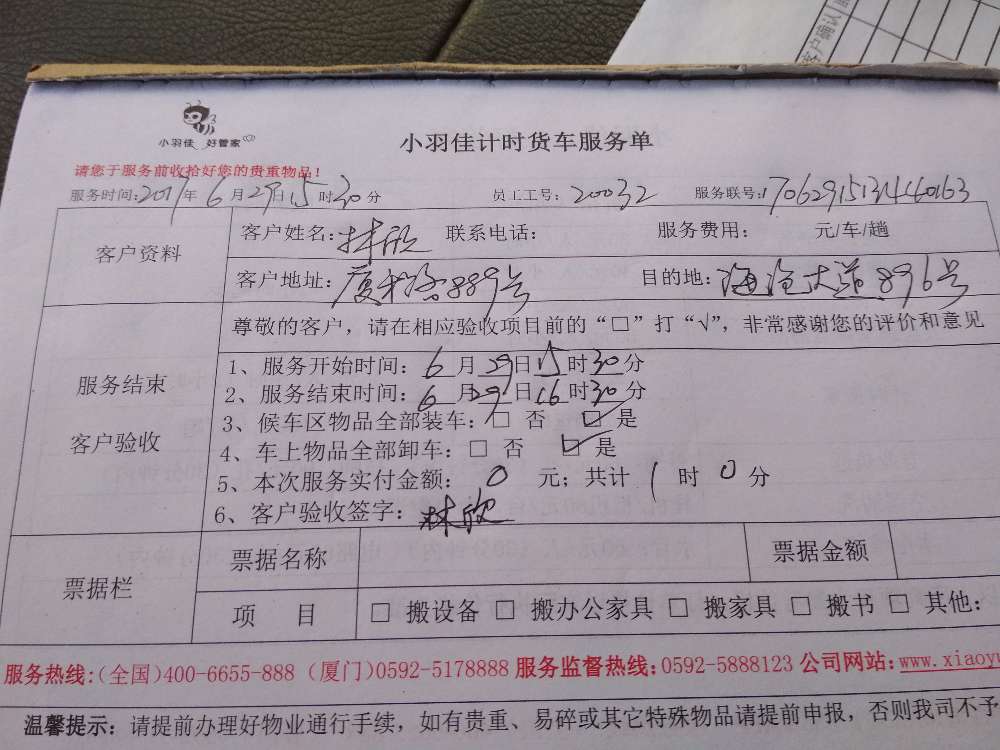 客户确认
小羽佳 好管家
小羽佳计时货车服务单
请您于服务前收拾好您的贵重物品!
服务时间:2017年6月29日15时30分 员工工号:20032 服务联号:170629151344460163
客户资料
客户姓名:林欣 联系电话: 服务费用: 元/车/趟
客户地址:厦禾路889号 目的地:海沧大道896号
尊敬的客户，请在相应验收项目前的“□”打“√”，非常感谢您的评价和意见
服务结束
客户验收
1、服务开始时间:6月29日15时30分
2、服务结束时间:6月29日16时30分
3、候车区物品全部装车:□ 否 ☑ 是
4、车上物品全部卸车:□ 否 ☑ 是
5、本次服务实付金额: 0 元; 共计 1 时 0 分
6、客户验收签字:林欣
票据栏
票据名称 票据金额
项 目 □ 搬设备 □ 搬办公家具 □ 搬家具 □ 搬书 □ 其他:
服务热线:(全国)400-6655-888 (厦门)0592-5178888 服务监督热线:0592-5888123 公司网站:www.xiaoyu
温馨提示: 请提前办理好物业通行手续，如有贵重、易碎或其它特殊物品请提前申报，否则我司不予